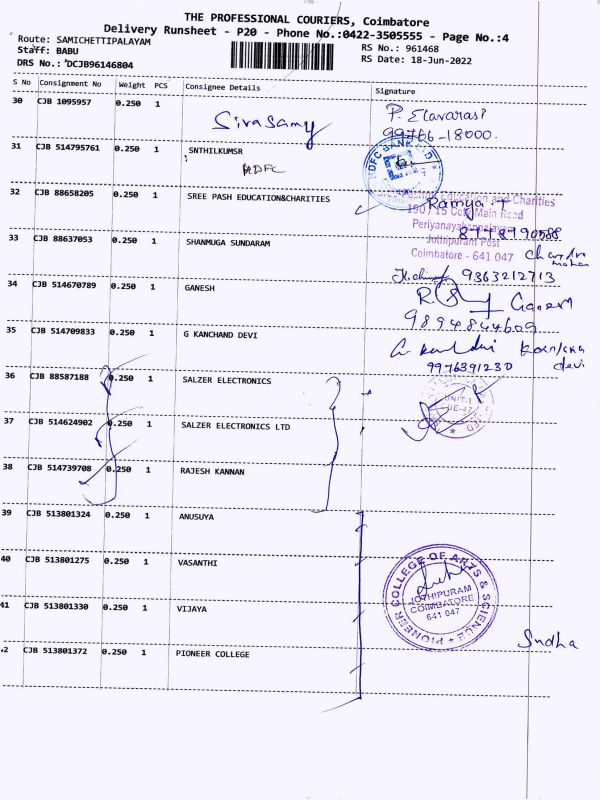 THE PROFESSIONAL COURIERS, Coimbatore
Delivery Runsheet - P20 - Phone No.:0422-3505555 - Page No.:4
Route: SAMICHETTIPALAYAM
Staff: BABU
DRS No.: DCJB96146804
RS No.: 961468
RS Date: 18-Jun-2022
S No Consignment No Weight PCS Consignee Details Signature
30 CJB 1095957 0.250 1 Sivasamy P. Elavarasi
99766-18000.
31 CJB 514795761 0.250 1 SNTHILKUMSR
HDFC
HDFC BANK
32 CJB 88658205 0.250 1 SREE PASH EDUCATION&CHARITIES
Education and Charities
Ramya T
190 / 15 Main Road
Periyanayakanpalayam
Jothipuram Post
Coimbatore - 641 047
8778790588
33 CJB 88637053 0.250 1 SHANMUGA SUNDARAM
9363212713
34 CJB 514670789 0.250 1 GANESH
Ganesh
9894844609
35 CJB 514709833 0.250 1 G KANCHAND DEVI
devi
9976391230
36 CJB 88587188 0.250 1 SALZER ELECTRONICS
UNIT-1
37 CJB 514624902 0.250 1 SALZER ELECTRONICS LTD
38 CJB 514739708 0.250 1 RAJESH KANNAN
39 CJB 513801324 0.250 1 ANUSUYA
40 CJB 513801275 0.250 1 VASANTHI
41 CJB 513801330 0.250 1 VIJAYA
PIONEER COLLEGE OF ARTS & SCIENCE
JOTHIPURAM
COIMBATORE
641 047
Sudha
42 CJB 513801372 0.250 1 PIONEER COLLEGE